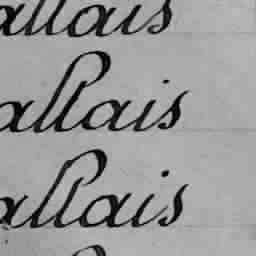 allais
allais
allais